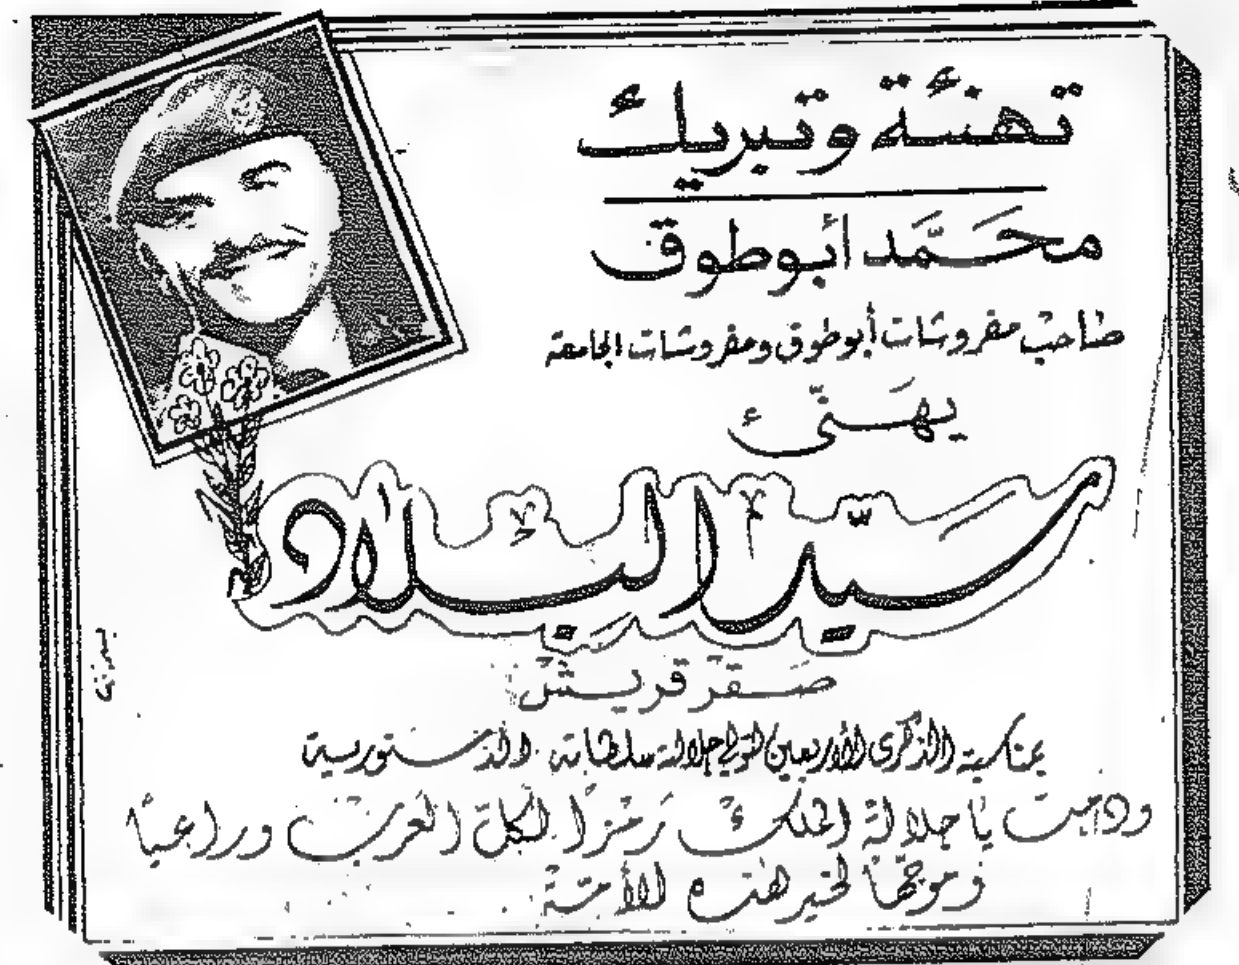 تهنئة وتبريك
محمَّد أبو طوق
صاحب مفروشات أبو طوق ومفروشات الجامعة
يهنّئ
سيّد البلاد
صقر قريش
بمناسبة الذكرى الأربعين لتولي جلالته سلطاته الدستورية
ودمت يا جلالة الملك رمزًا لكل العرب وراعيًا
وموجهًا لخير هذه الأمة